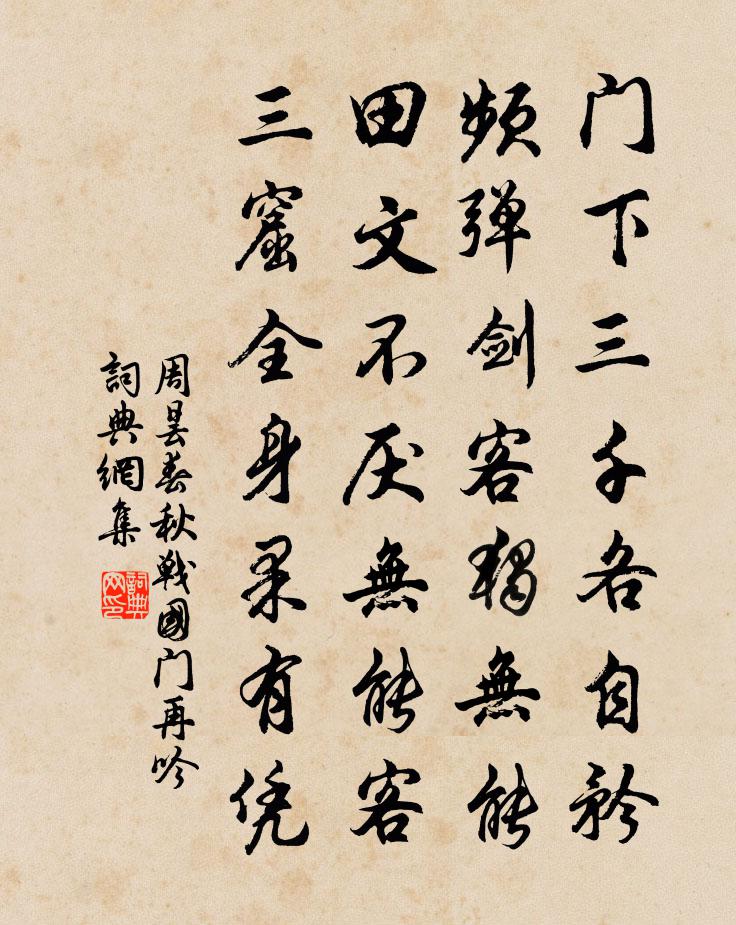 门下三千各自矜
频弹剑客独無能
田文不厌無能客
三窟全身果有凭
周昙春秋戰國门再吟
詞典網集
詞典网印